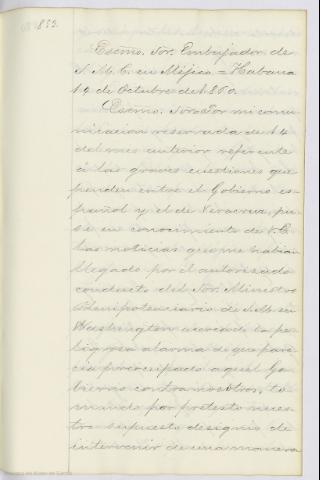 852.
Escmo. Sor. Embajador de
S. M. C. en Méjico = Habana
14 de Octubre de 1860.
Escmo. Sor = Por mi comu
nicacion reservada de 14
del mes anterior referente
á las graves cuestiones que
penden entre el Gobierno es-
pañol y el de Veracruz, pu-
se en conocimiento de V. E.
las noticias que me habian
llegado por el autorizado
conducto del Sor. Ministro
Plenipotenciario de S. M. en
Washington acerca de la pe-
ligrosa alarma de que pare-
cia preocupado aquel Go-
bierno contra nosotros, to-
mando por pretesto nues-
tro supuesto designio de
intervenir de una manera